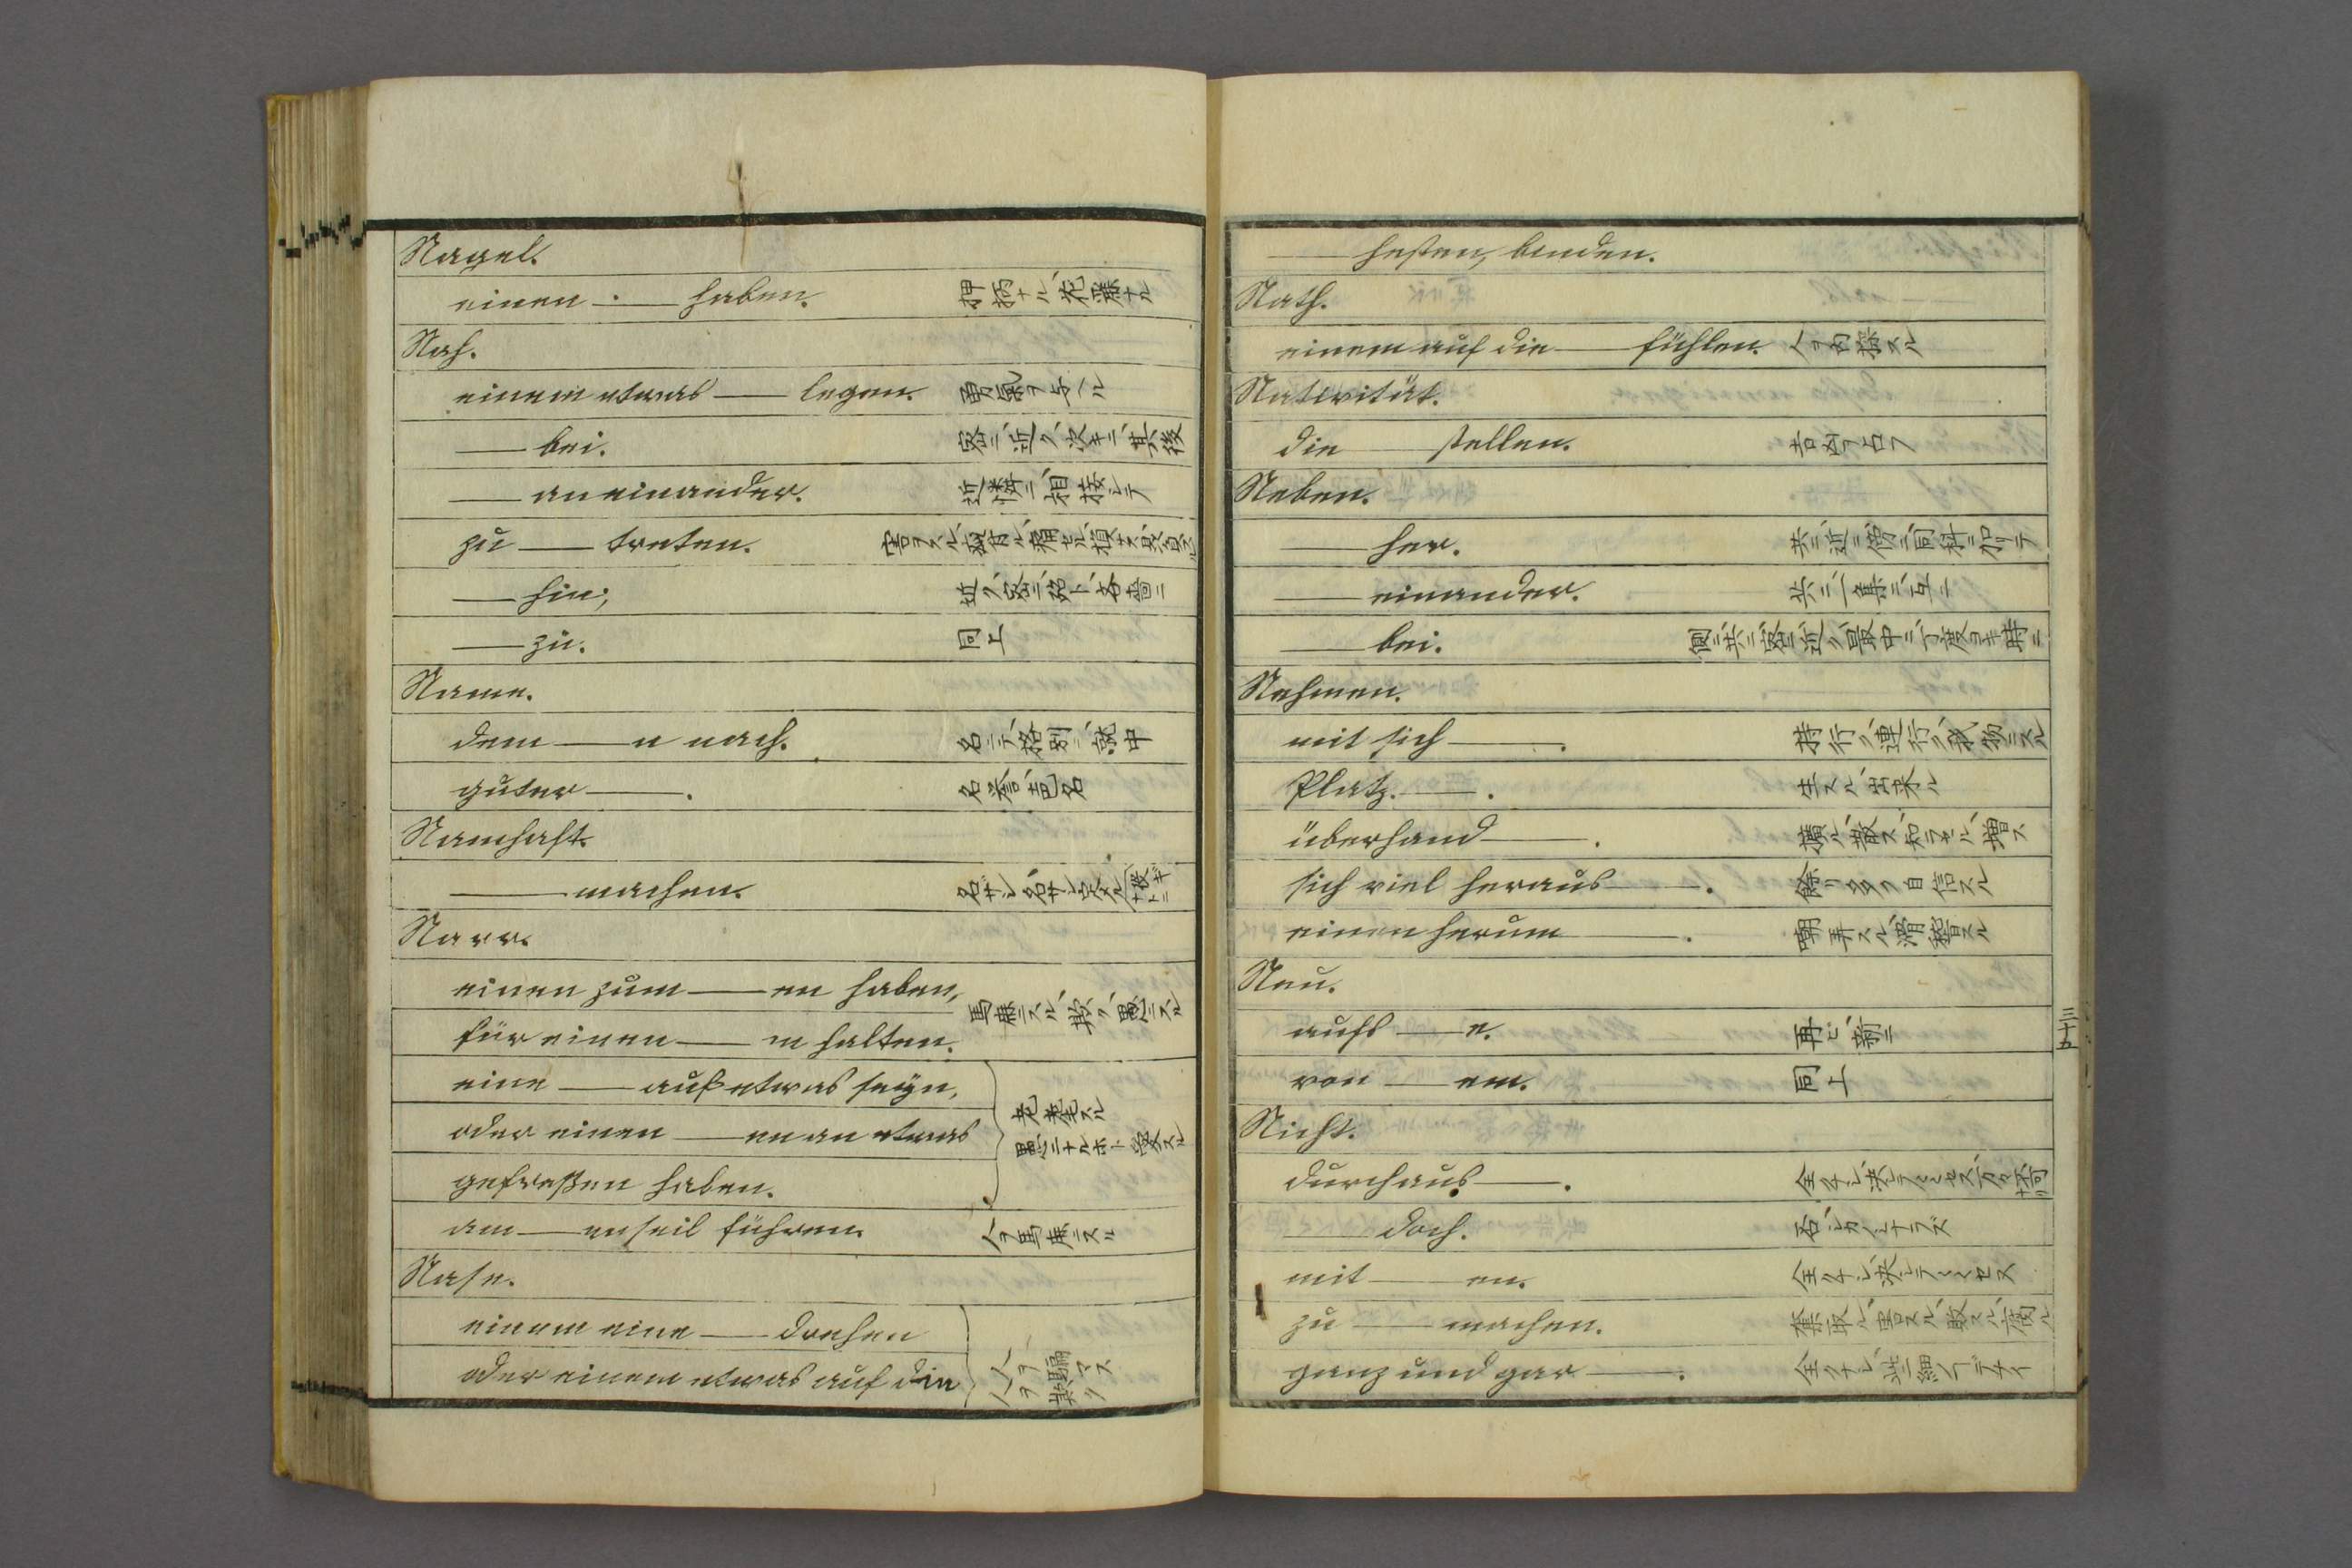 Nagel.
einen — haben. 押柄ナル、
Nah.
einem etwas — legen. 勇氣ヲ与ヘル
— bei. 密ニ、近ク、次キニ、其後
— an einander. 近隣ニ、相接シテ
zu — treten. 害ヲスル、
— hin; 近ク、密ニ、
— zu. 同上
Name.
dem — n nach. 名ニテ、格別ニ、就中
guter —. 名誉、
Namhaft.
— machen. 名ザシ、
Narr.
einen zum — en haben,
für einen — n halten. 馬鹿ニスル、欺ク、愚ニスル
eine — auf etwas seyn,
oder einen — en an etwas
gefreßen haben. 老耄スル 愚ニナルホト愛スル
am — enseil führen. 人ヲ馬鹿ニスル
Nase.
einem eine — drehen
oder einem etwas auf die 人ヲ騙マス 人ヲ欺ク
— heften, binden.
Nath.
einem auf die — fühlen. 人ヲ内探スル
Nativität.
die — stellen. 吉凶ヲ占フ
Neben.
— her. 共ニ、近ニ、傍ニ、同科ニ加リテ
— einander. 共ニ、一集ニ、互ニ
— bei. 側ニ、共ニ、密ニ、近ク、最中ニ、丁度ヨキ時ニ
Nehmen.
mit sich —. 持行ク、連行ク、我物ニスル
Platz —. 生スル、出来ル
überhand —. 廣ル、散ス、増ス
sich viel heraus —. 餘リ多ク自信スル
einen herum —. 嘲弄スル、滑稽スル
Neu.
aufs — e. 再ヒ、新ニ
von — em. 同上
三十五
Nicht.
durchaus —. 全クナシ、決シテ
— doch. 否、シカシナラズ
mit — en. 全クナシ、決シテ
zu — machen. 奪取ル、害スル、敗ル、
ganz und gar —. 全クナシ、些細